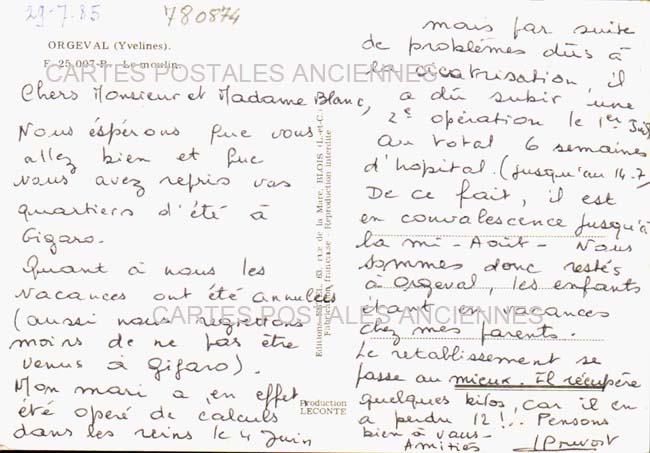 29-7.85
780874
ORGEVAL (Yvelines).
Le moulin.
CARTES POSTALES ANCIENNES
Chers Monsieur et Madame Blanc,
Nous éspérons que vous
allez bien et que
vous avez repris vos
quartiers d'été à
Gigaro.
Quant à nous les
vacances ont été annulées
(aussi nous regrettons
moins de ne pas être
venus à Gigaro).
Mon mari a en effet
été opéré de calculs
dans les reins le 4 Juin
Editions 63, rue de la Maire, BLOIS (L.-et-C.)
Fabrication française - Reproduction interdite
Production
LECONTE
mais par suite
de problèmes dûs à
la cicatrisation, il
a dû subir une
2e opération le 1er
au total 6 semaines
d'hopital. (jusqu'au 14.7)
De ce fait, il est
en convalescence jusqu'à
la mi-Août - Nous
sommes donc restés
à Orgeval, les enfants
étant en vacances
CARTES POSTALES ANCIENNES
chez mes parents.
Le retablissement se
passe au mieux. Il récupère
quelques kilos, car il en
a perdu 12!.. Pensons
bien à vous-
Amitiés